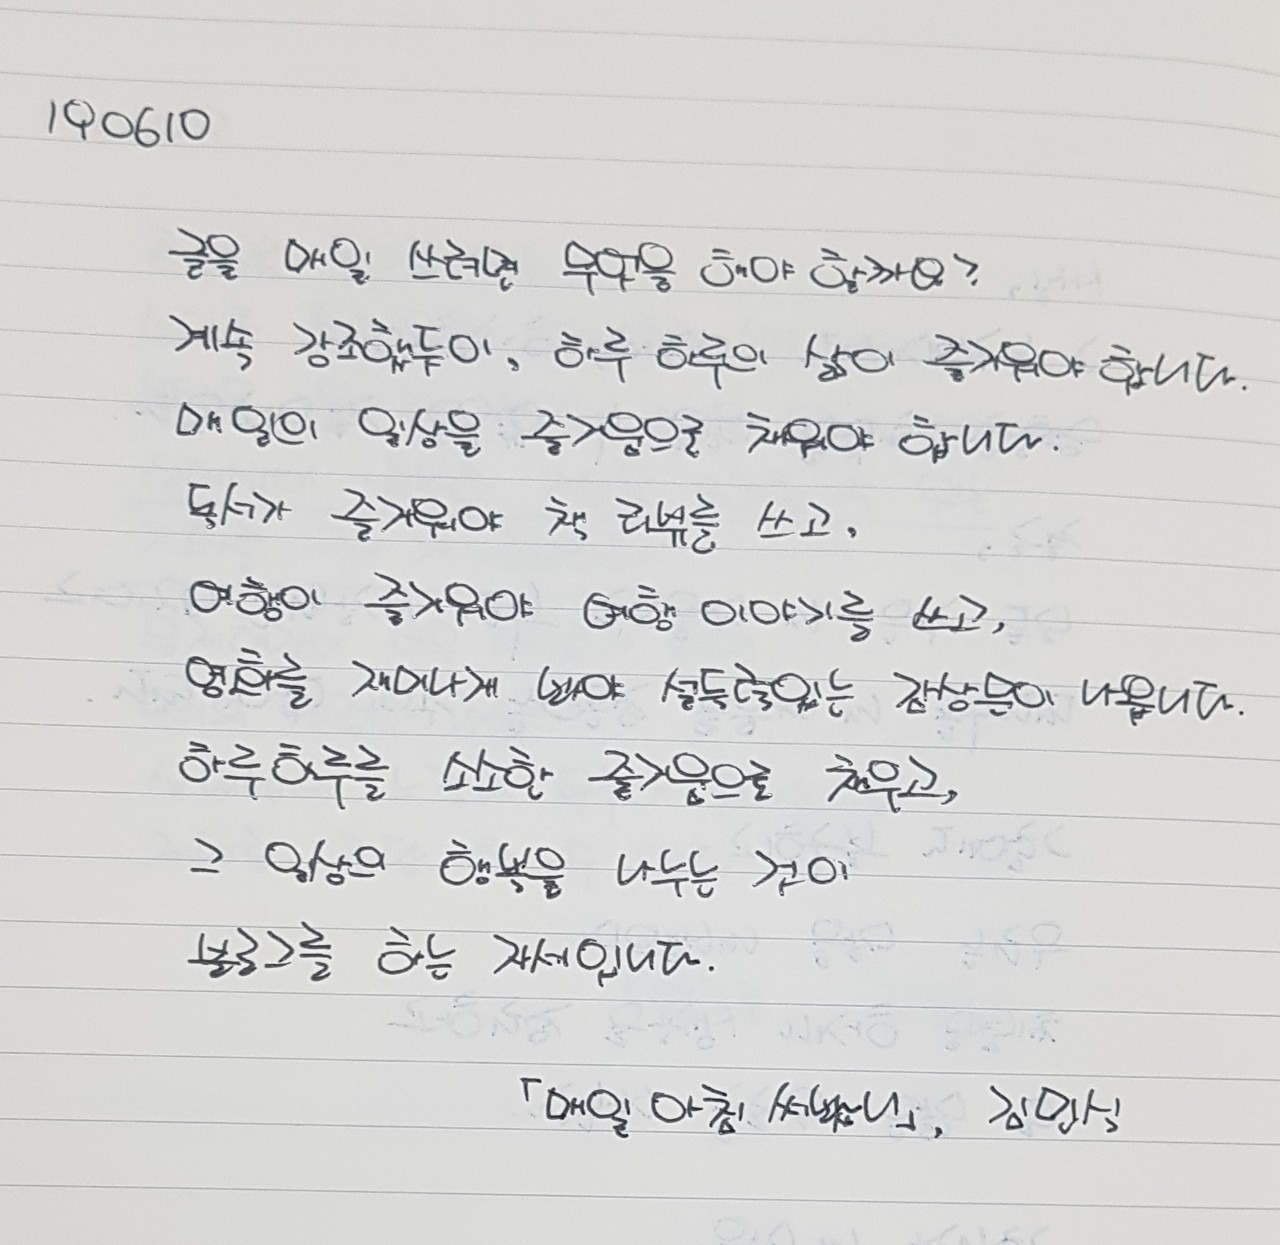 190610
글을 매일 쓰려면 무엇을 해야 할까요?
계속 강조했듯이, 하루 하루의 삶이 즐거워야 합니다.
매일의 일상을 즐거움으로 채워야 합니다.
독서가 즐거워야 책 리뷰를 쓰고,
여행이 즐거워야 여행 이야기를 쓰고,
영화를 재미나게 봐야 설득력있는 감상문이 나옵니다.
하루하루를 소소한 즐거움으로 채우고,
그 일상의 행복을 나누는 것이
블로그를 하는 자세입니다.
「매일 아침 써봤니」, 김민식